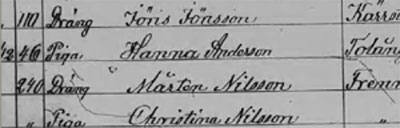 110 Dräng Jöns Jönsson
46 Piga Hanna Anderson Tolång
240 Dräng Mårten Nilsson
" Piga Christina Nilsson "